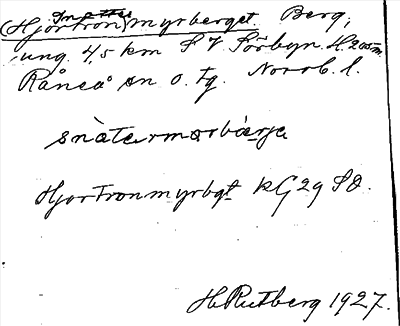 Snåtter
(Hjortron)myrberget. Berg,
ung. 4,5 km S V Sörbyn. H. 200 m.
Råneå sn o. tg. Norrb. l.
snàtermarbárje
Hjortronmyrbgt kG 29 SO.
H. Rutberg 1927.